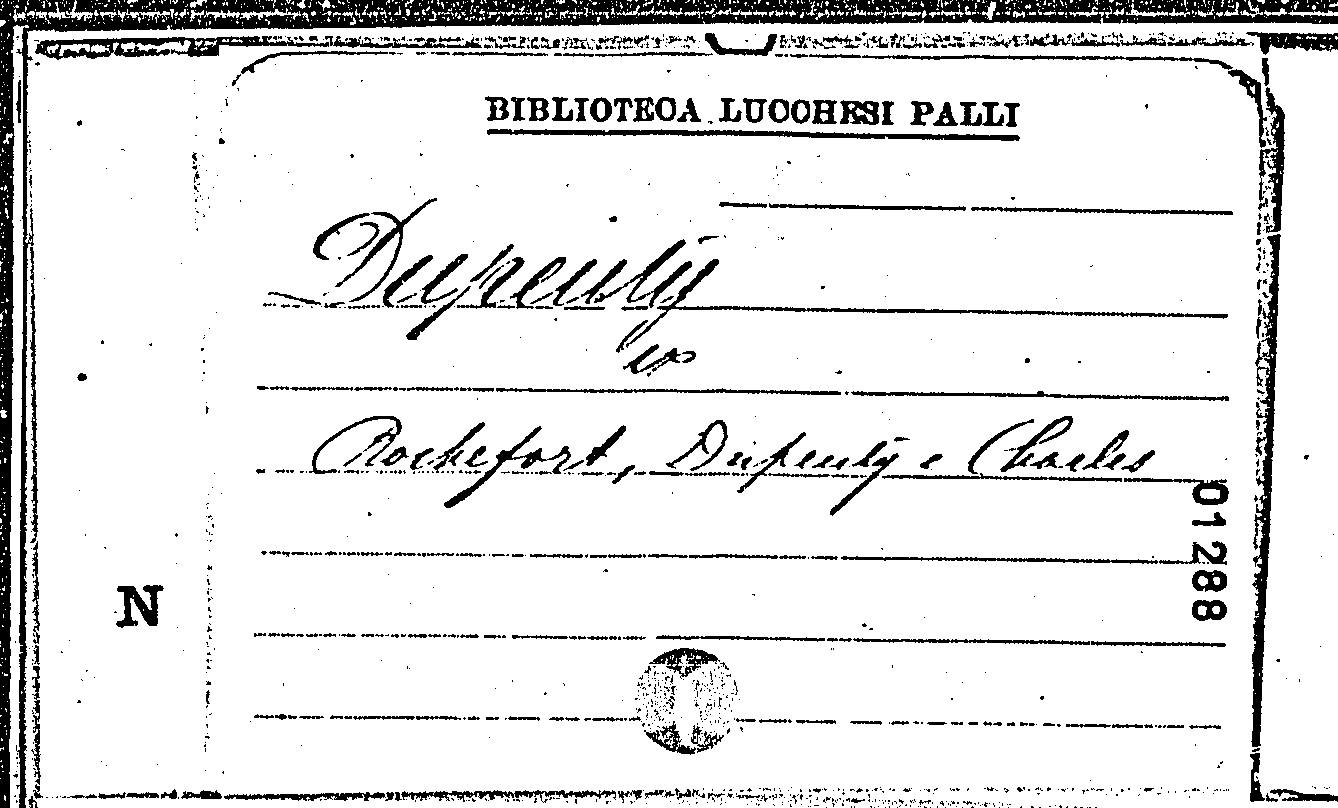 BIBLIOTECA LUCCHESI PALLI
Dupeuty
Rochefort, Dupeuty e Charles
01288
N